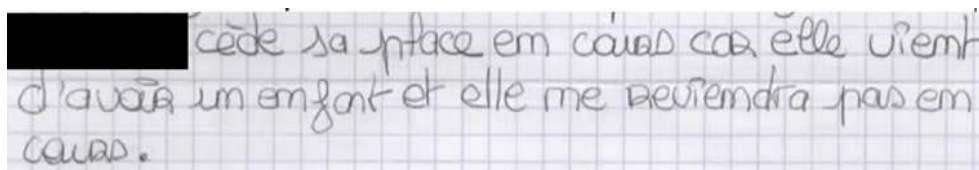 cède sa place en cours car elle vient
d'avoir un enfant et elle ne reviendra pas en
cours.